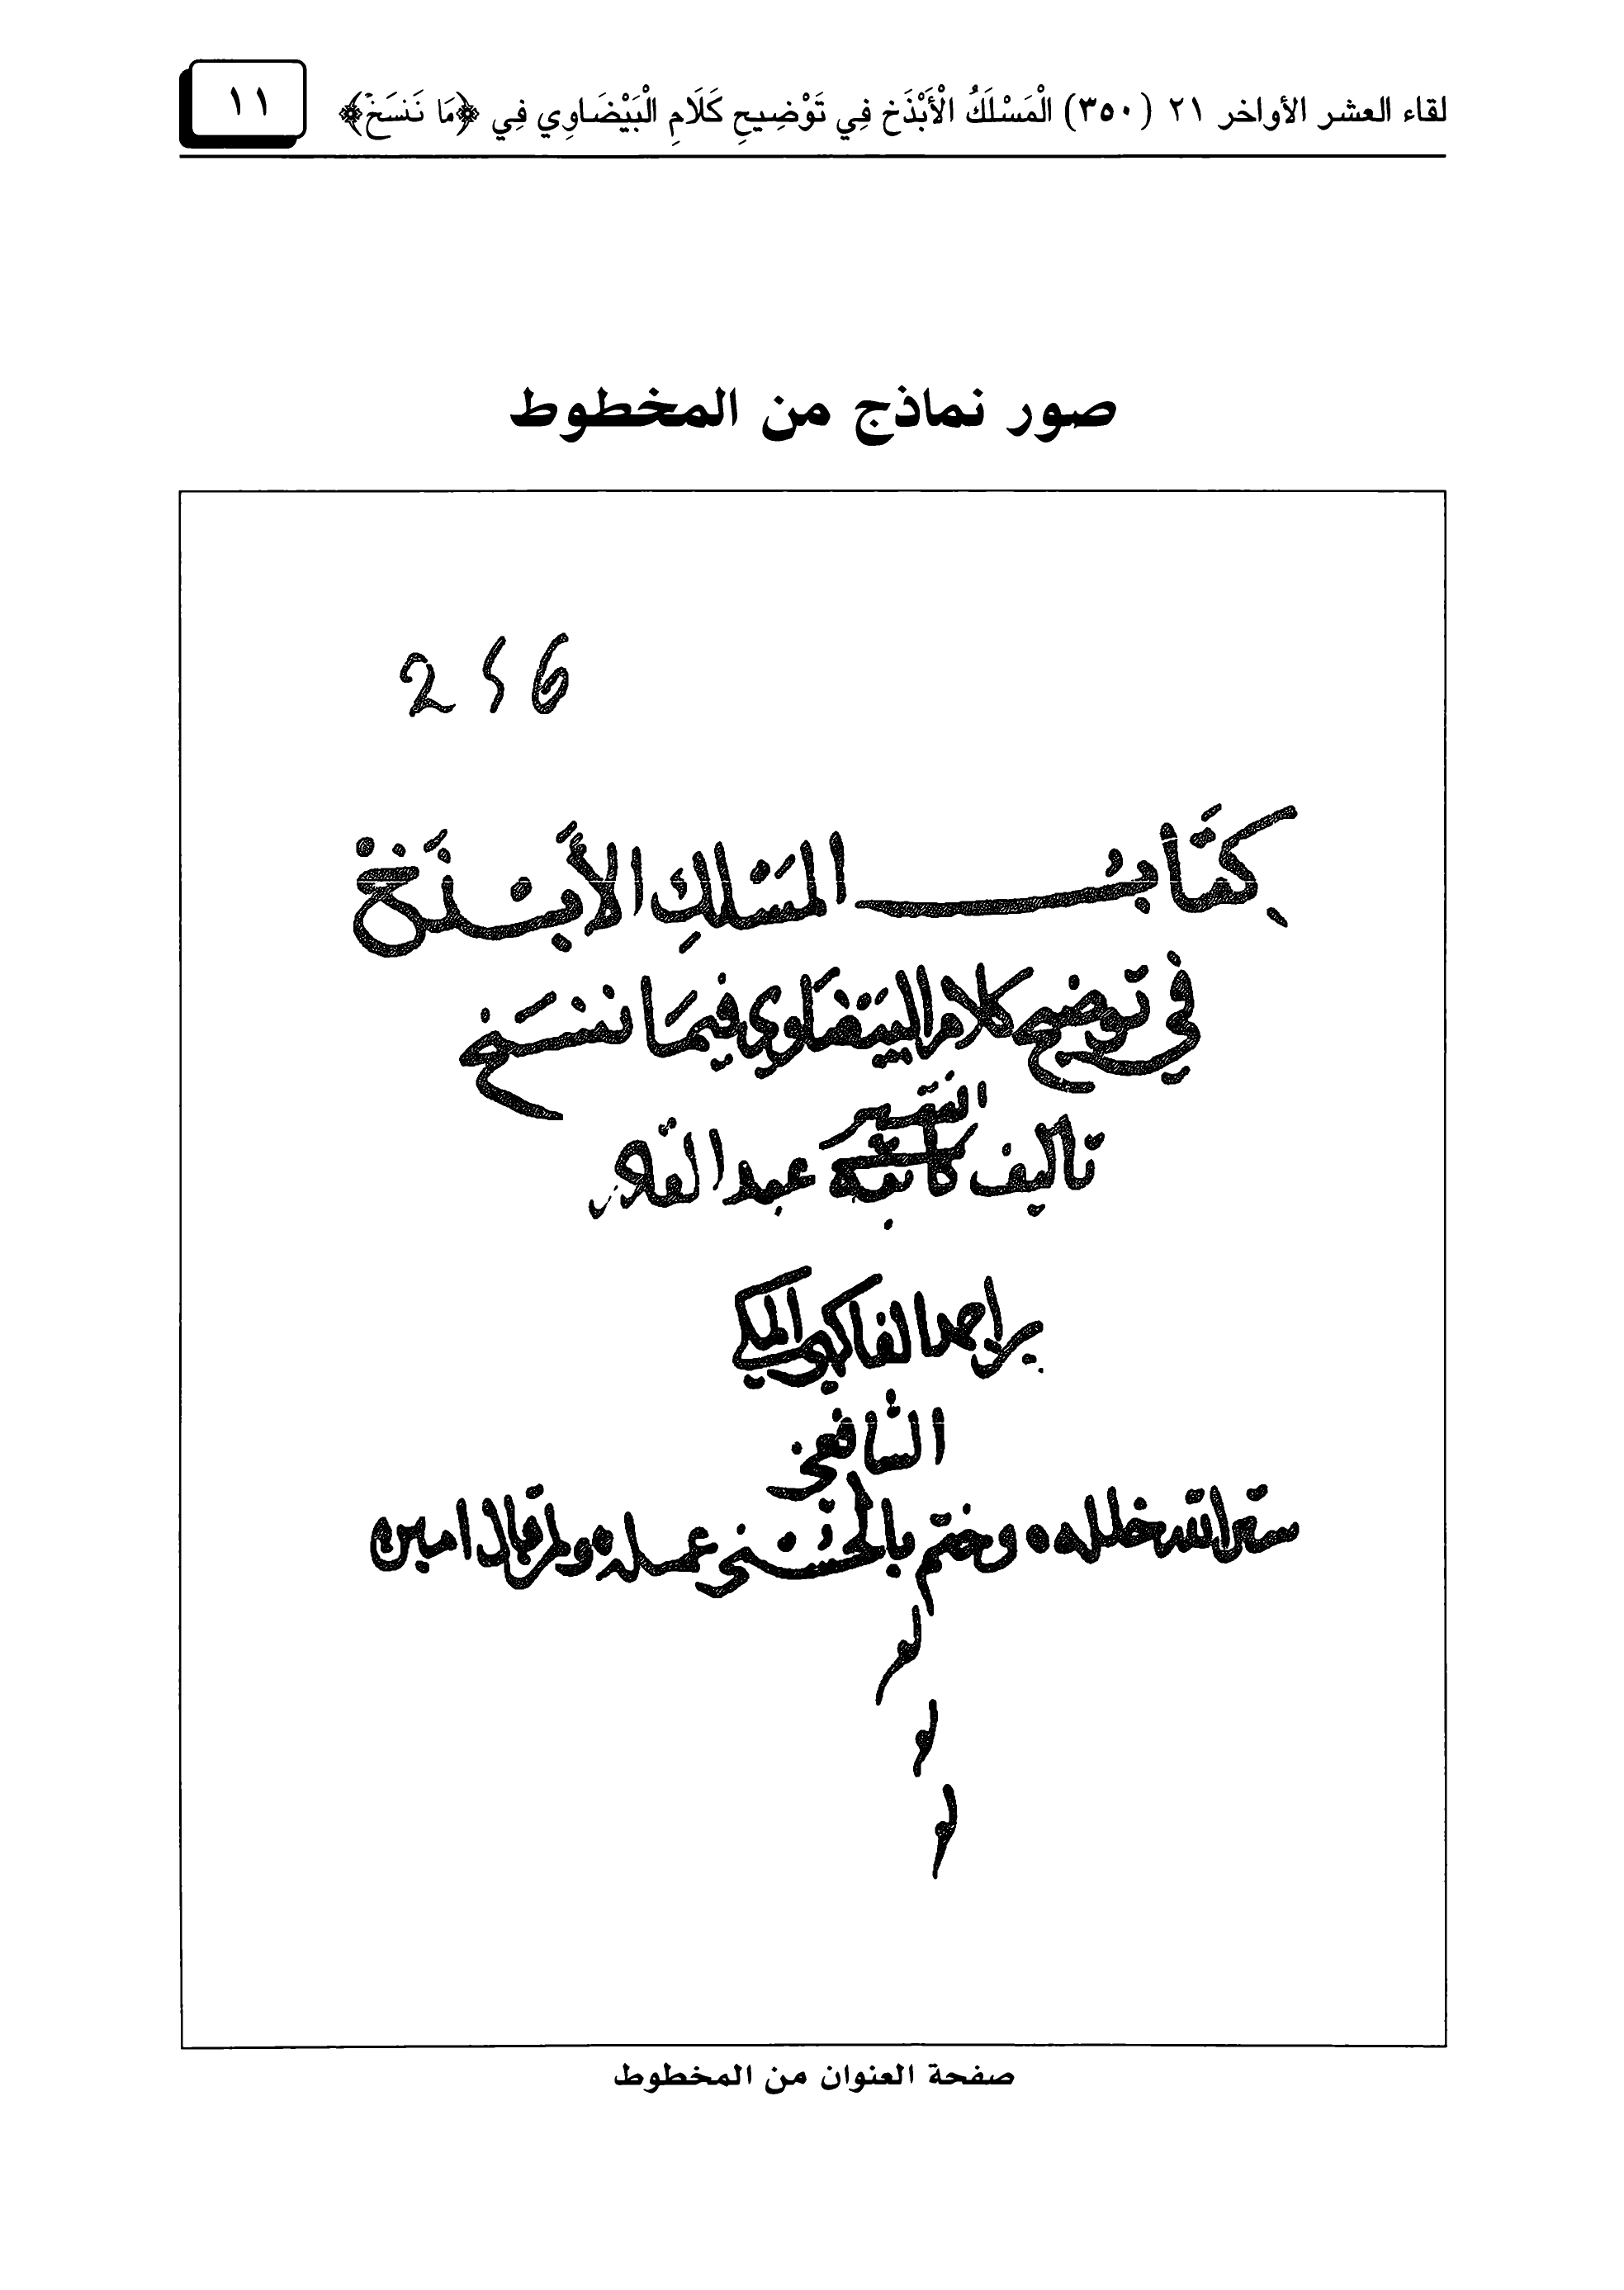 لقاء العشر الأواخر ٢١ (٣٥٠) الْمَسْلَكُ الْأَبْذَخ فِي تَوْضِيحِ كَلَامِ الْبَيْضَاوِي فِي ﴿مَا نَنسَخْ﴾ ١١
صور نماذج من المخطوط
2 6
كتاب المسلك الأبذخ
في توضيح كلام البيضاوي فيما ننسخ
الفقير
تاليف كاتبه عبد القادر
بن احمد الفاكهي المكي
الشافعي
ستر الله خلله وختم بالحسنى عمله ولمن قال امين
صفحة العنوان من المخطوط